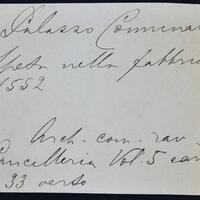 Palazzo Comunal
Spesa nella fabbric
1552
Arch. com. rav.
Cancelleria Vol. 5 car
33 verso